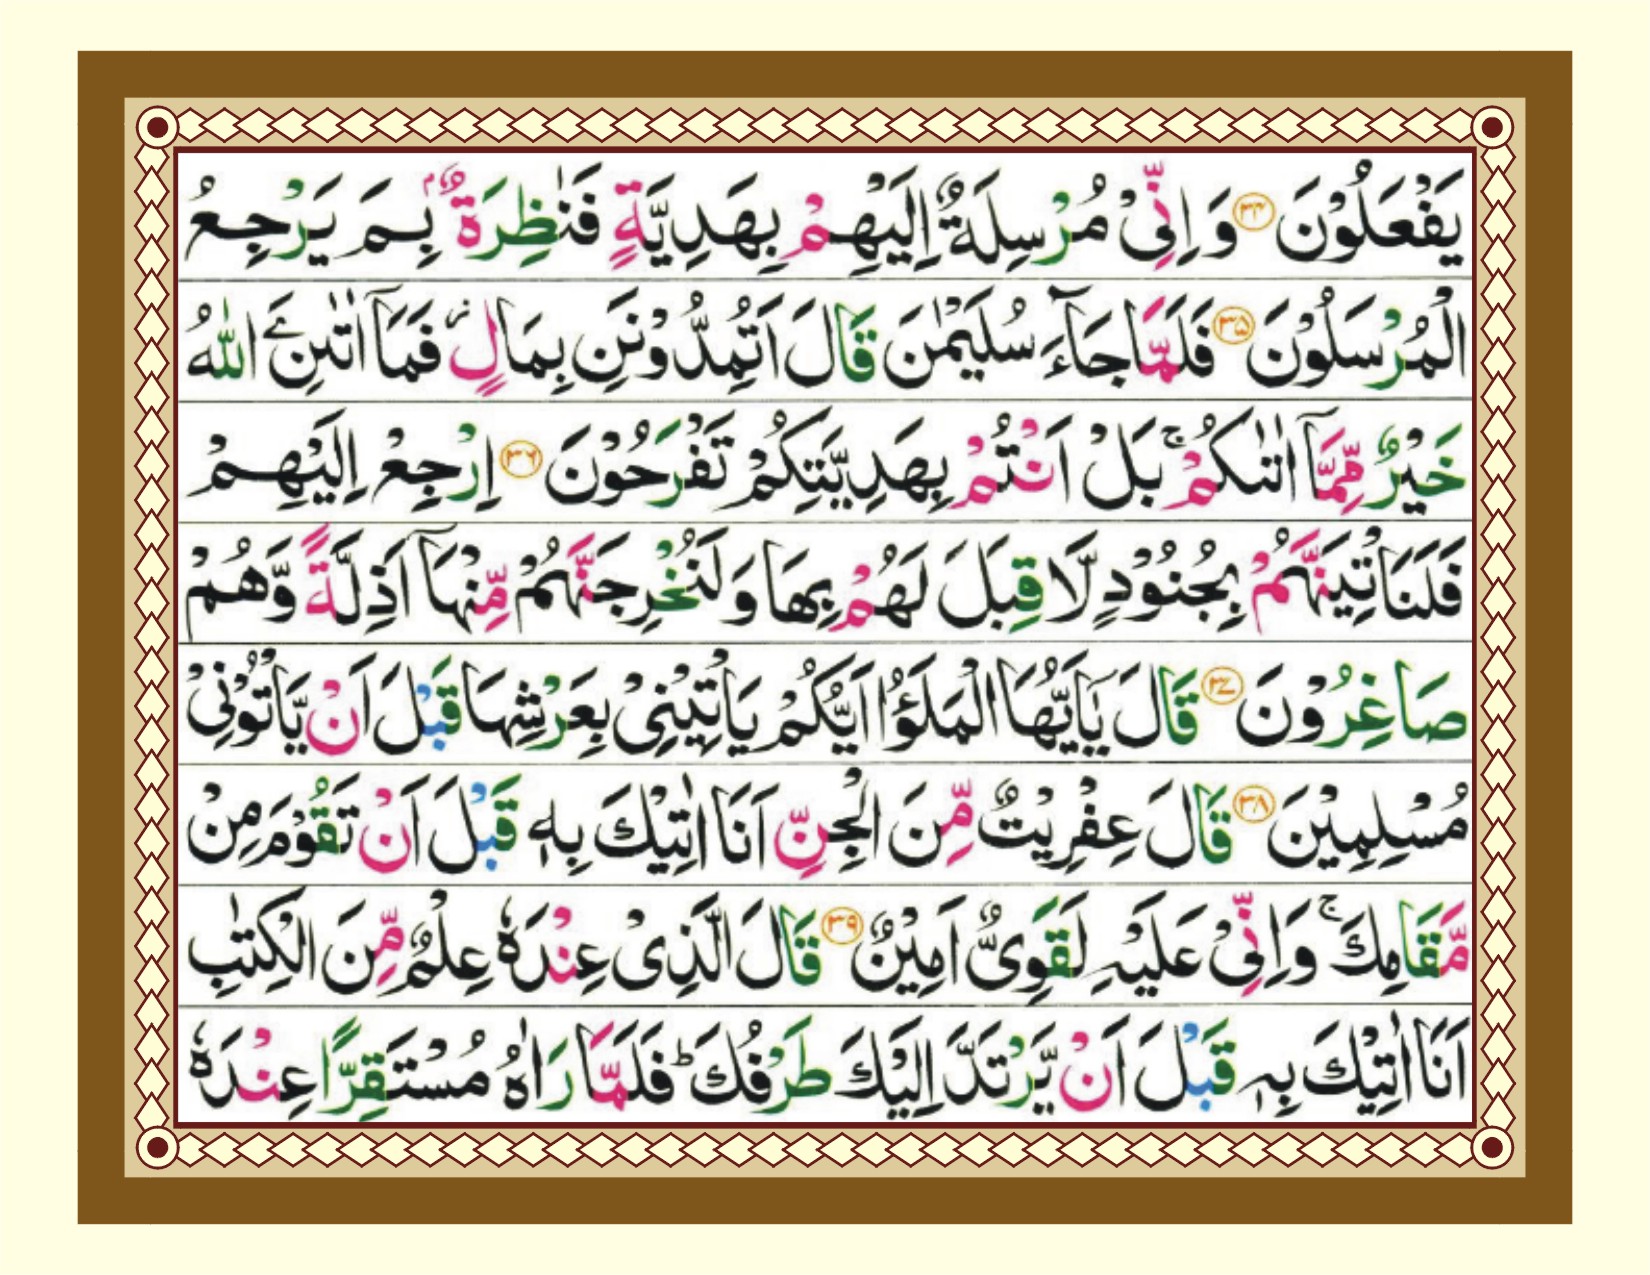 يَفْعَلُوْنَ ﴿۳۴﴾ وَ اِنِّیْ مُرْسِلَةٌ اِلَیْهِمْ بِهَدِیَّةٍ فَنٰظِرَةٌۢ بِمَ یَرْجِعُ
الْمُرْسَلُوْنَ ﴿۳۵﴾ فَلَمَّا جَآءَ سُلَیْمٰنَ قَالَ اَتُمِدُّوْنَنِ بِمَالٍ٘ فَمَاۤ اٰتٰىنِۦَ اللّٰهُ
خَیْرٌ مِّمَّاۤ اٰتٰىكُمْۚ بَلْ اَنْتُمْ بِهَدِیَّتِكُمْ تَفْرَحُوْنَ ﴿۳۶﴾ اِرْجِعْ اِلَیْهِمْ
فَلَنَاْتِیَنَّهُمْ بِجُنُوْدٍ لَّا قِبَلَ لَهُمْ بِهَا وَ لَنُخْرِجَنَّهُمْ مِّنْهَاۤ اَذِلَّةً وَّ هُمْ
صَاغِرُوْنَ ﴿۳۷﴾ قَالَ یٰۤاَیُّهَا الْمَلَؤُا اَیُّكُمْ یَاْتِیْنِیْ بِعَرْشِهَا قَبْلَ اَنْ یَّاْتُوْنِیْ
مُسْلِمِیْنَ ﴿۳۸﴾ قَالَ عِفْرِیْتٌ مِّنَ الْجِنِّ اَنَا اٰتِیْكَ بِهٖ قَبْلَ اَنْ تَقُوْمَ مِنْ
مَّقَامِكَۚ وَ اِنِّیْ عَلَیْهِ لَقَوِیٌّ اَمِیْنٌ ﴿۳۹﴾ قَالَ الَّذِیْ عِنْدَهٗ عِلْمٌ مِّنَ الْكِتٰبِ
اَنَا اٰتِیْكَ بِهٖ قَبْلَ اَنْ یَّرْتَدَّ اِلَیْكَ طَرْفُكَؕ فَلَمَّا رَاٰهُ مُسْتَقِرًّا عِنْدَهٗ